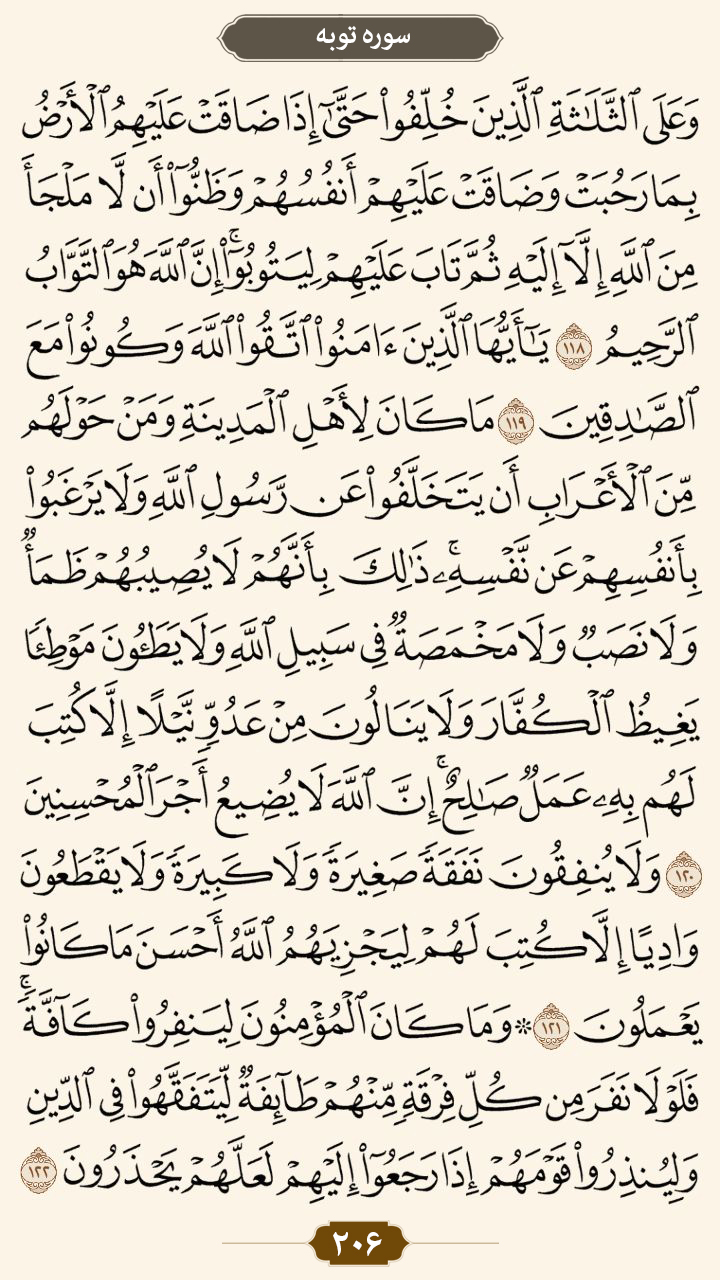 سوره توبه
وَعَلَى ٱلثَّلَٰثَةِ ٱلَّذِينَ خُلِّفُوا۟ حَتَّىٰٓ إِذَا ضَاقَتْ عَلَيْهِمُ ٱلْأَرْضُ
بِمَا رَحُبَتْ وَضَاقَتْ عَلَيْهِمْ أَنفُسُهُمْ وَظَنُّوٓا۟ أَن لَّا مَلْجَأَ
مِنَ ٱللَّهِ إِلَّآ إِلَيْهِ ثُمَّ تَابَ عَلَيْهِمْ لِيَتُوبُوٓا۟ ۚ إِنَّ ٱللَّهَ هُوَ ٱلتَّوَّابُ
ٱلرَّحِيمُ ١١٨ يَٰٓأَيُّهَا ٱلَّذِينَ ءَامَنُوا۟ ٱتَّقُوا۟ ٱللَّهَ وَكُونُوا۟ مَعَ
ٱلصَّٰدِقِينَ ١١٩ مَا كَانَ لِأَهْلِ ٱلْمَدِينَةِ وَمَنْ حَوْلَهُم
مِّنَ ٱلْأَعْرَابِ أَن يَتَخَلَّفُوا۟ عَن رَّسُولِ ٱللَّهِ وَلَا يَرْغَبُوا۟
بِأَنفُسِهِمْ عَن نَّفْسِهِۦ ۚ ذَٰلِكَ بِأَنَّهُمْ لَا يُصِيبُهُمْ ظَمَأٌ
وَلَا نَصَبٌ وَلَا مَخْمَصَةٌ فِى سَبِيلِ ٱللَّهِ وَلَا يَطَـُٔونَ مَوْطِئًا
يَغِيظُ ٱلْكُفَّارَ وَلَا يَنَالُونَ مِنْ عَدُوٍّ نَّيْلًا إِلَّا كُتِبَ
لَهُم بِهِۦ عَمَلٌ صَٰلِحٌ ۚ إِنَّ ٱللَّهَ لَا يُضِيعُ أَجْرَ ٱلْمُحْسِنِينَ
١٢٠ وَلَا يُنفِقُونَ نَفَقَةً صَغِيرَةً وَلَا كَبِيرَةً وَلَا يَقْطَعُونَ
وَادِيًا إِلَّا كُتِبَ لَهُمْ لِيَجْزِيَهُمُ ٱللَّهُ أَحْسَنَ مَا كَانُوا۟
يَعْمَلُونَ ١٢١ ۞ وَمَا كَانَ ٱلْمُؤْمِنُونَ لِيَنفِرُوا۟ كَآفَّةً ۚ
فَلَوْلَا نَفَرَ مِن كُلِّ فِرْقَةٍ مِّنْهُمْ طَآئِفَةٌ لِّيَتَفَقَّهُوا۟ فِى ٱلدِّينِ
وَلِيُنذِرُوا۟ قَوْمَهُمْ إِذَا رَجَعُوٓا۟ إِلَيْهِمْ لَعَلَّهُمْ يَحْذَرُونَ ١٢٢
۲۰۶